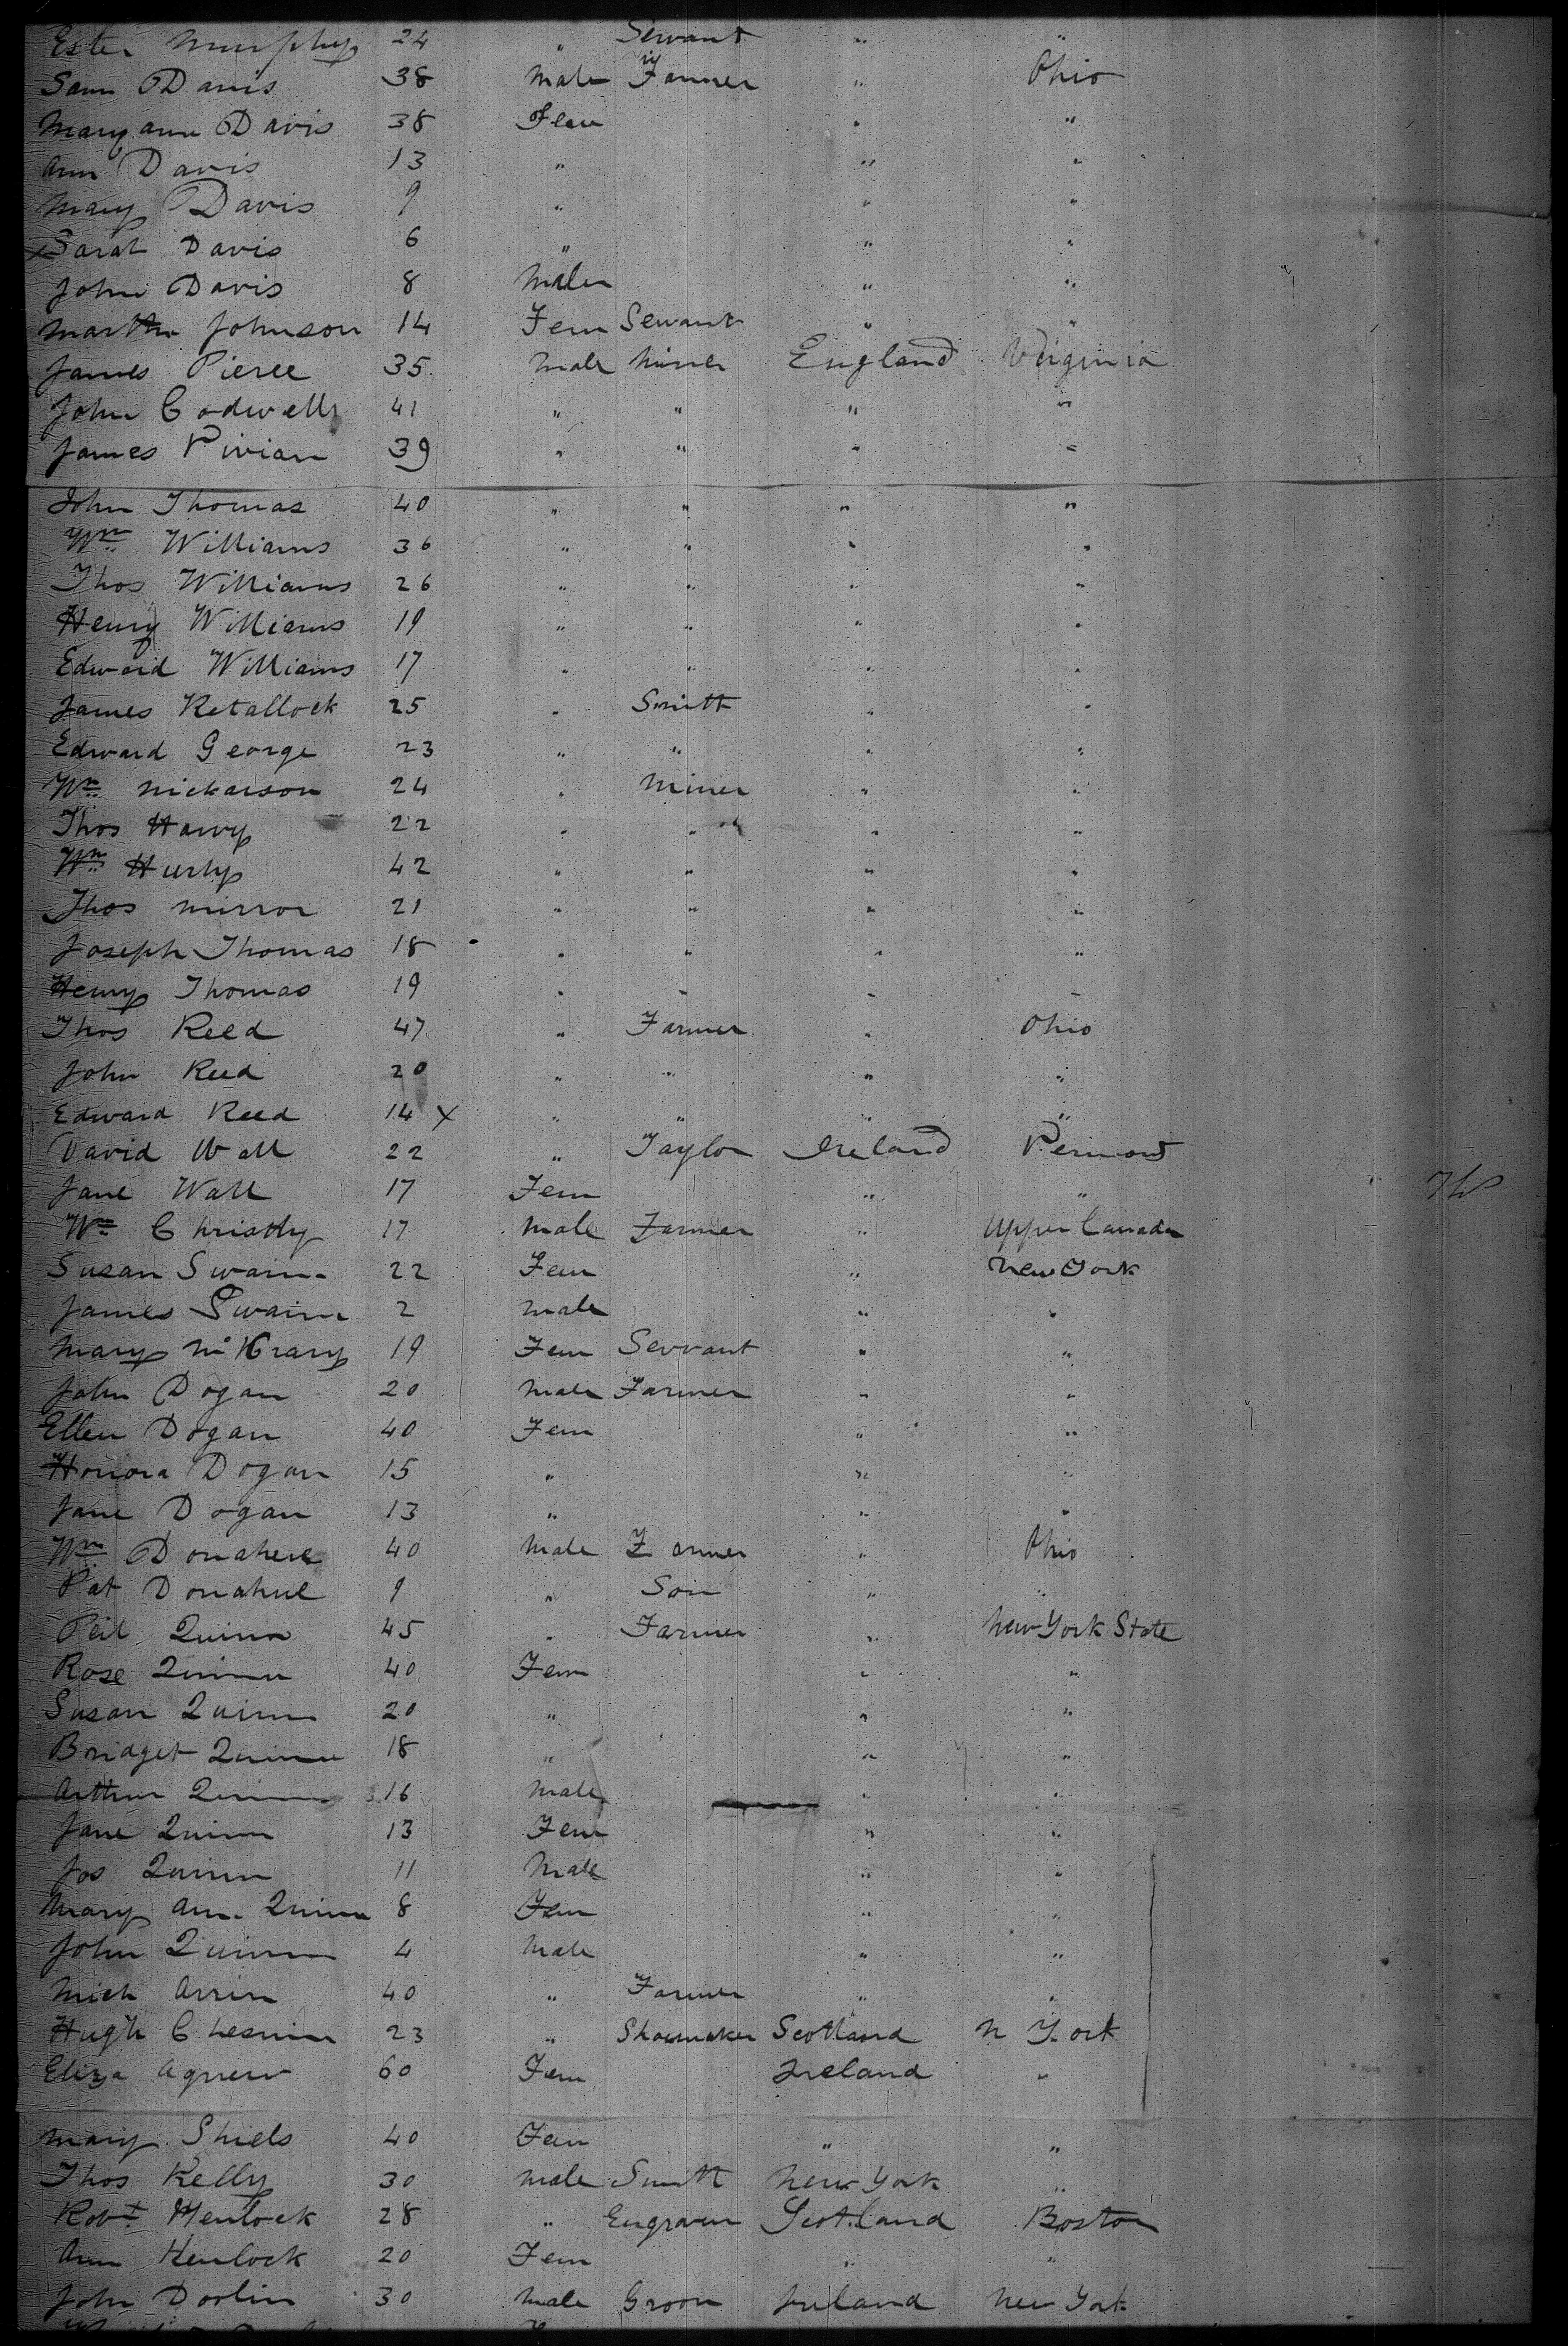 Ester Murphy 24 " Servant " "
Sam Davis 38 Male Farmer " Ohio
Mary ann Davis 38 Fem " "
Ann Davis 13 " " "
Mary Davis 9 " " "
Sarah Davis 6 " " "
John Davis 8 Male " "
Martha Johnson 14 Fem Servant " "
James Pierce 35 Male Miner England Virginia
John Codwell 41 " " " "
James Vivian 39 " " " "
John Thomas 40 " " " "
Wm Williams 36 " " " "
Thos Williams 26 " " " "
Henry Williams 19 " " " "
Edward Williams 17 " " " "
James Retallock 25 " Smith " "
Edward George 23 " " " "
Wm Nickarson 24 " Miner " "
Thos Harvy 22 " " " "
Wm Hurly 42 " " " "
Thos Mirror 21 " " " "
Joseph Thomas 18 " " " "
Henry Thomas 19 " " " "
Thos Reed 47 " Farmer " Ohio
John Reed 20 " " " "
Edward Reed 14 x " " " "
David Wall 22 " Taylor Ireland Vermont
Jane Wall 17 Fem " "
Wm Christly 17 Male Farmer " Upper Canada
Susan Swain 22 Fem " New York
James Swain 2 Male " "
Mary McKrary 19 Fem Servant " "
John Dogan 20 Male Farmer " "
Ellen Dogan 40 Fem " "
Honora Dogan 15 " " "
Jane Dogan 13 " " "
Wm Donahue 40 Male Farmer " Ohio
Pat Donahue 9 " Son " "
Quinn 45 " Farmer " New York State
Rose Quinn 40 Fem " "
Susan Quinn 20 " " "
Bridget Quinn 18 " " "
Arthur Quinn 16 Male " "
Jane Quinn 13 Fem " "
Jos Quinn 11 Male " "
Mary Ann Quinn 8 Fem " "
John Quinn 4 Male " "
Mich 40 " Farmer " "
Hugh 23 " Shoemaker Scotland N York
Eliza Agnew 60 Fem Ireland "
Mary Shiels 40 Fem " "
Thos Kelly 30 Male Smith New York "
Robt Henlock 28 " Engraver Scotland Boston
Ann Henlock 20 Fem " "
John Dorlin 30 Male Groom Ireland New York